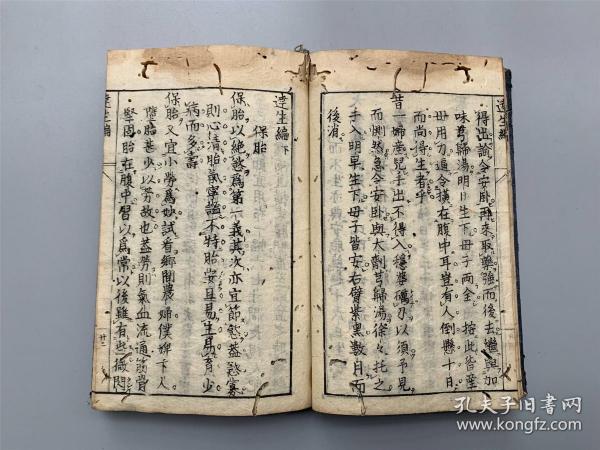 達生編
得出諭令安卧再來取藥強而後去繼與加
味芎歸湯明日生下母子兩全　按此皆產
母用力逼令橫在腹中耳豈有人倒懸十日
而尚得生者乎
昔一婦產兒手出不得入穩婆礪刀以須予見
而惻然急令安卧與大劑芎歸湯徐々托之
手入明早生下母子皆安右臂紫黑數日而
後消
達生編下
保胎
保胎以絶慾爲第一義其次亦宜節慾蓋慾寡
則心清胎氣寧謐不特胎安且易生易育少
病而多壽
保胎又宜小勞爲妙試看鄉間農婦僕婢下人
墮胎甚少以勞故也蓋勞則氣血流通筋骨
堅固胎在腹中習以爲常以後雖有些微閃
達生編
廿二
孔夫子旧書网
www.kongfz.com